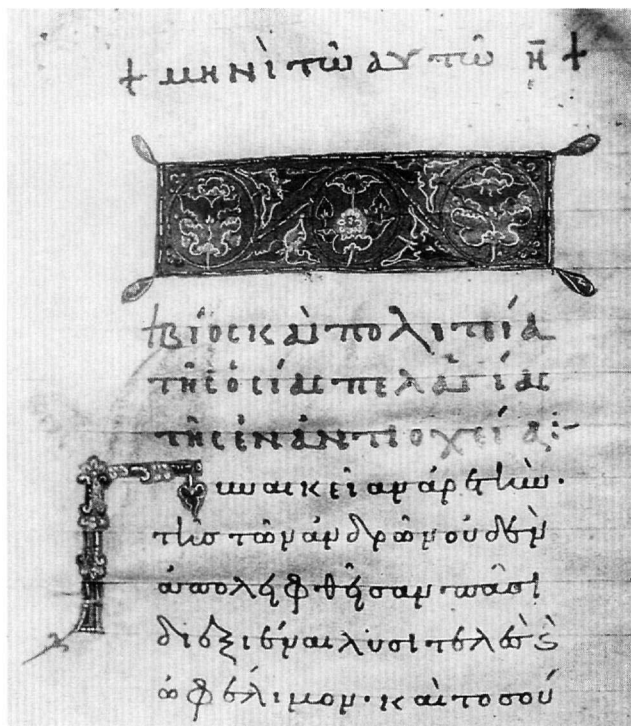 + μηνὶ τῶ αυτῶ η̄ +
+ βίος καὶ πολιτεία
τῆς ὁσίας πελαγίας
τῆς ἐν ἀντιοχεία :-
Γυναικείαν ἀρετὴν·
τῆς τῶν ἀνδρῶν οὐδὲν
ἀπολειφθεῖσαν πᾶσι
διεξιέναι λυσιτελὲς ϗ
ὠφέλιμον· καὶ τοσού